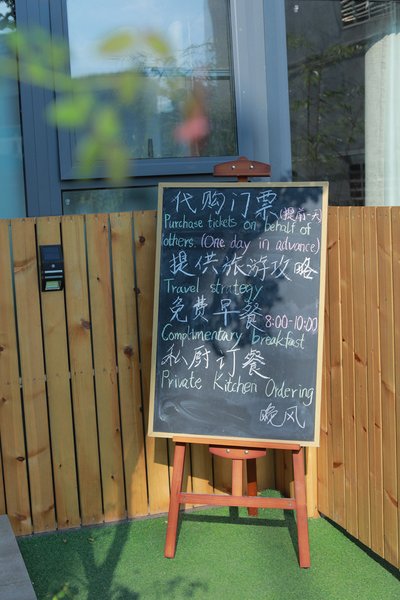 代购门票(提前一天)
Purchase tickets on behalf of
others. (One day in advance)
提供旅游攻略
Travel strategy
免费早餐 8:00-10:00
Complimentary breakfast
私厨订餐
Private Kitchen Ordering
晚风